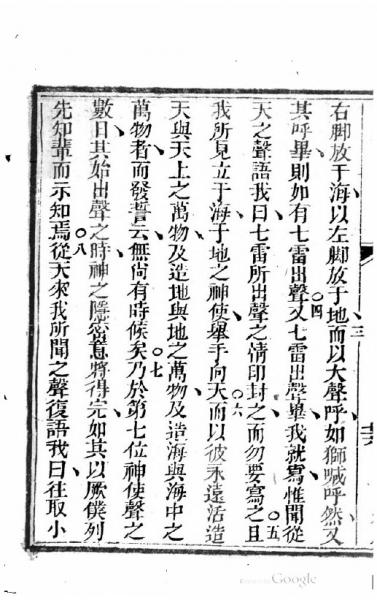 右脚放于海以左脚放于地而以大聲呼如獅喊呼然又
其呼畢則如有七雷出聲又七雷出聲畢我就寫惟聞從
天之聲語我曰七雷所出聲之情印封之而勿要寫之且
我所見立于海于地之神使舉手向天而以彼永遠活造
天與天上之萬物及造地與地之萬物及造海與海中之
萬物者而發誓云無尚有時候矣乃於第七位神使聲之
數日其始出聲之時神之隱密意將得完如其以厥僕列
先知輩而示知焉從天來我所聞之聲復語我曰往取小
三
○四
○五
○六
○七
○八
Google